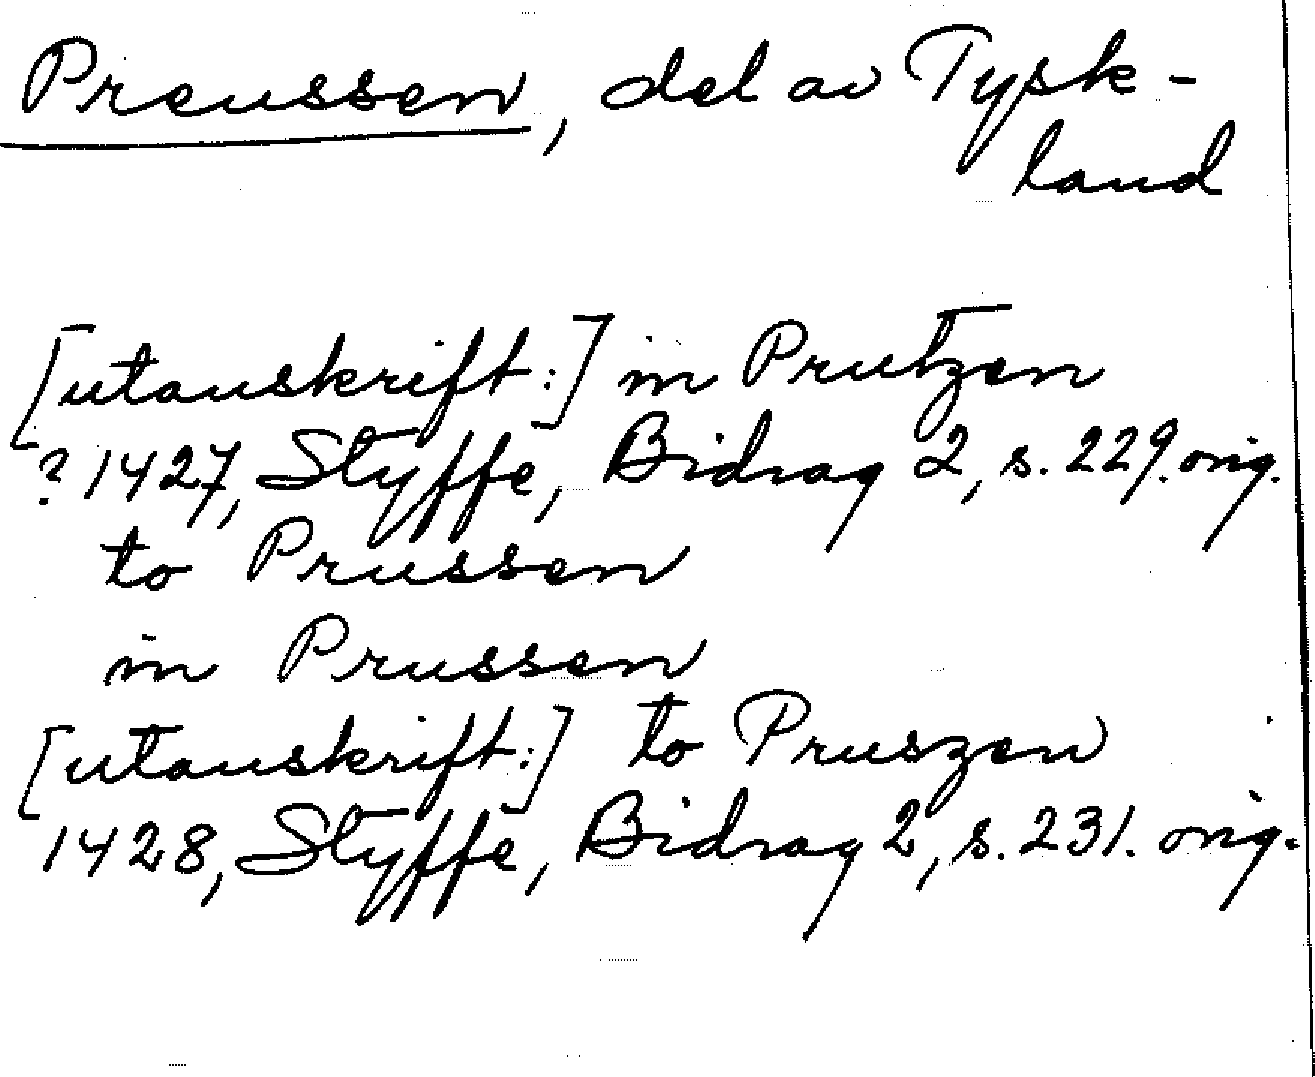 Preussen, del av Tysk-
land
[utanskrift:] in Prutzen
? 1427, Styffe, Bidrag 2, s. 229. orig.
to Prussen
in Prussen
[utanskrift:] to Pruszen
1428, Styffe, Bidrag 2, s. 231. orig.